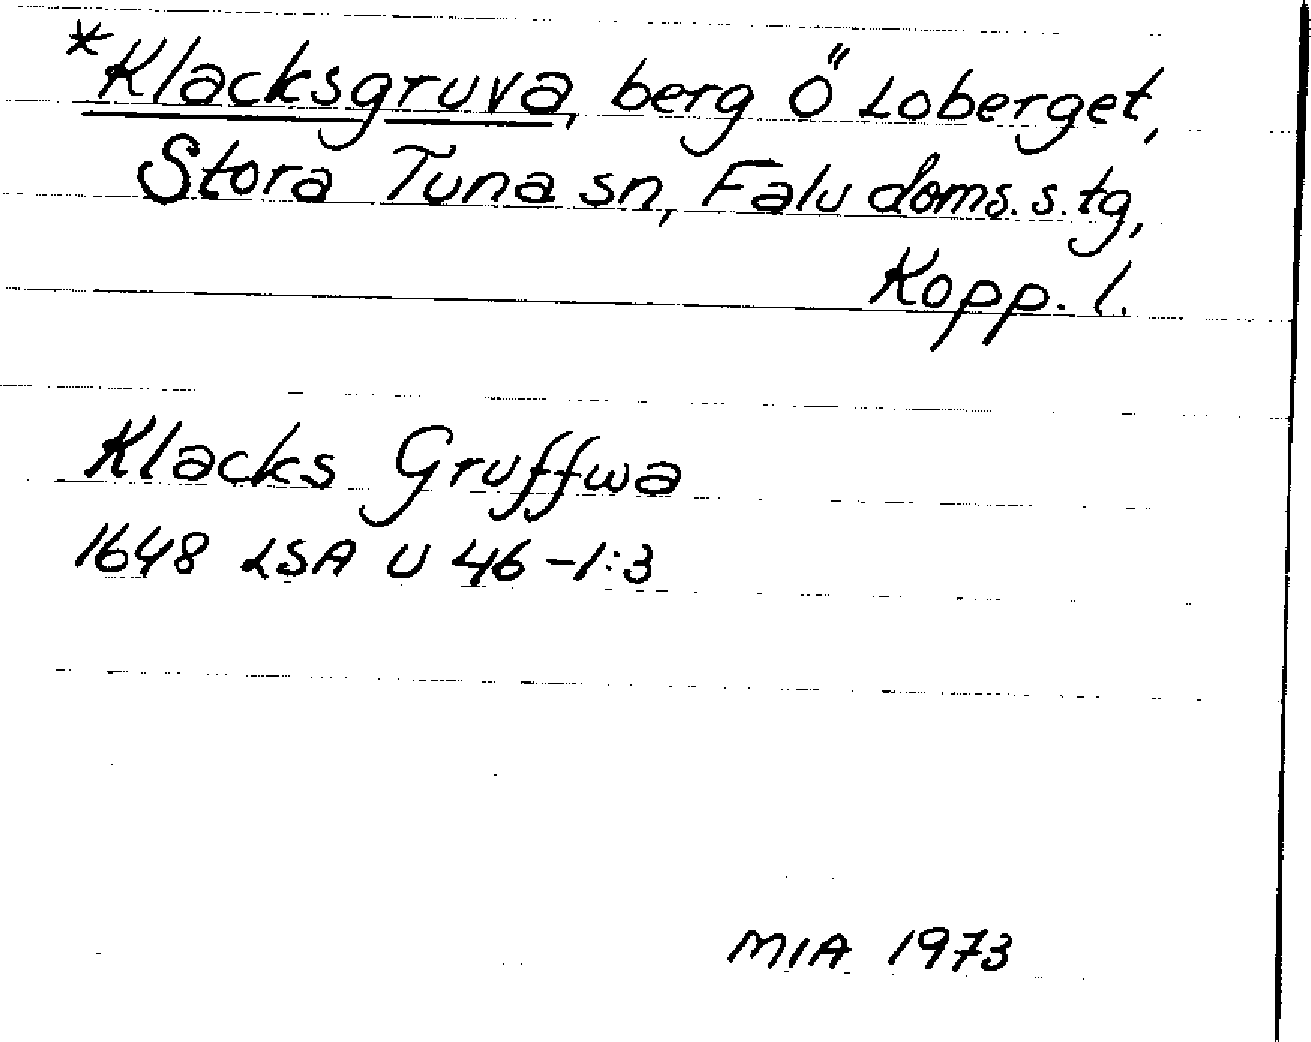 *Klacksgruva, berg Ö Loberget,
Stora Tuna sn, Falu doms.s. tg,
Kopp. l.
Klacks Gruffwa
1648 LSA U 46-1:3
MIA 1973